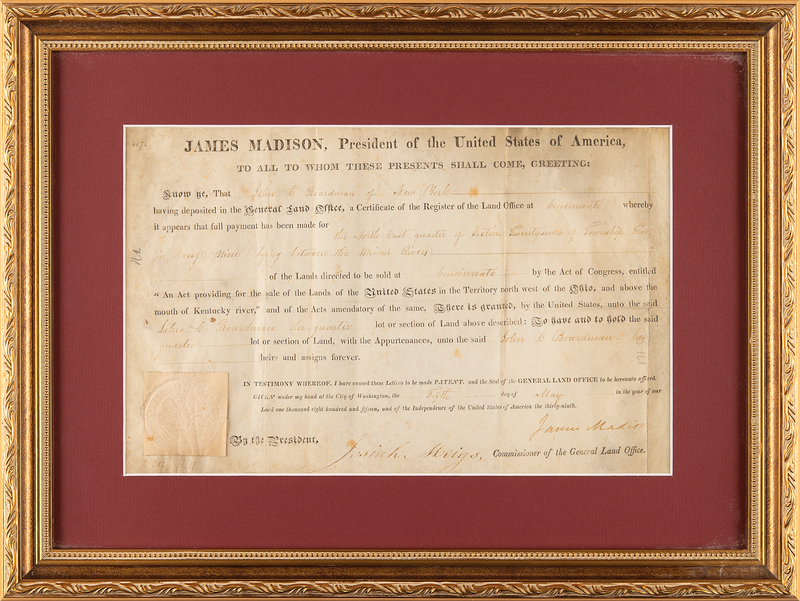 JAMES MADISON, President of the United States of America,
TO ALL TO WHOM THESE PRESENTS SHALL COME, GREETING:
Know ye, That John C Boardman of New York
having deposited in the General Land Office, a Certificate of the Register of the Land Office at Cincinnati whereby
it appears that full payment has been made for
the North East quarter of Section Twentyseven of Township
in Range Nine lying between the Miami Rivers
of the Lands directed to be sold at Cincinnati by the Act of Congress, entitled
"An Act providing for the sale of the Lands of the United States in the Territory north west of the Ohio, and above the
mouth of Kentucky river," and of the Acts amendatory of the same, There is granted, by the United States, unto the said
John C Boardman the quarter lot or section of Land above described: To have and to hold the said
quarter lot or section of Land, with the Appurtenances, unto the said John C Boardman his
heirs and assigns forever.
IN TESTIMONY WHEREOF, I have caused these Letters to be made PATENT, and the Seal of the GENERAL LAND OFFICE to be hereunto affixed.
GIVEN under my hand at the City of Washington, the fifth day of May in the year of our
Lord one thousand eight hundred and fifteen, and of the Independence of the United States of America the thirty-ninth.
James Madison
By the President,
Josiah Meigs, Commissioner of the General Land Office.